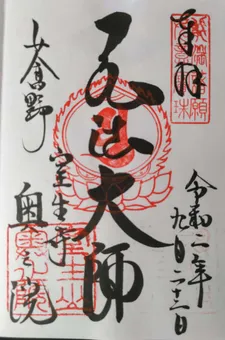 奉拝
令和二年
九月二十二日
弘法大師
女人高野
室生寺
奥之院